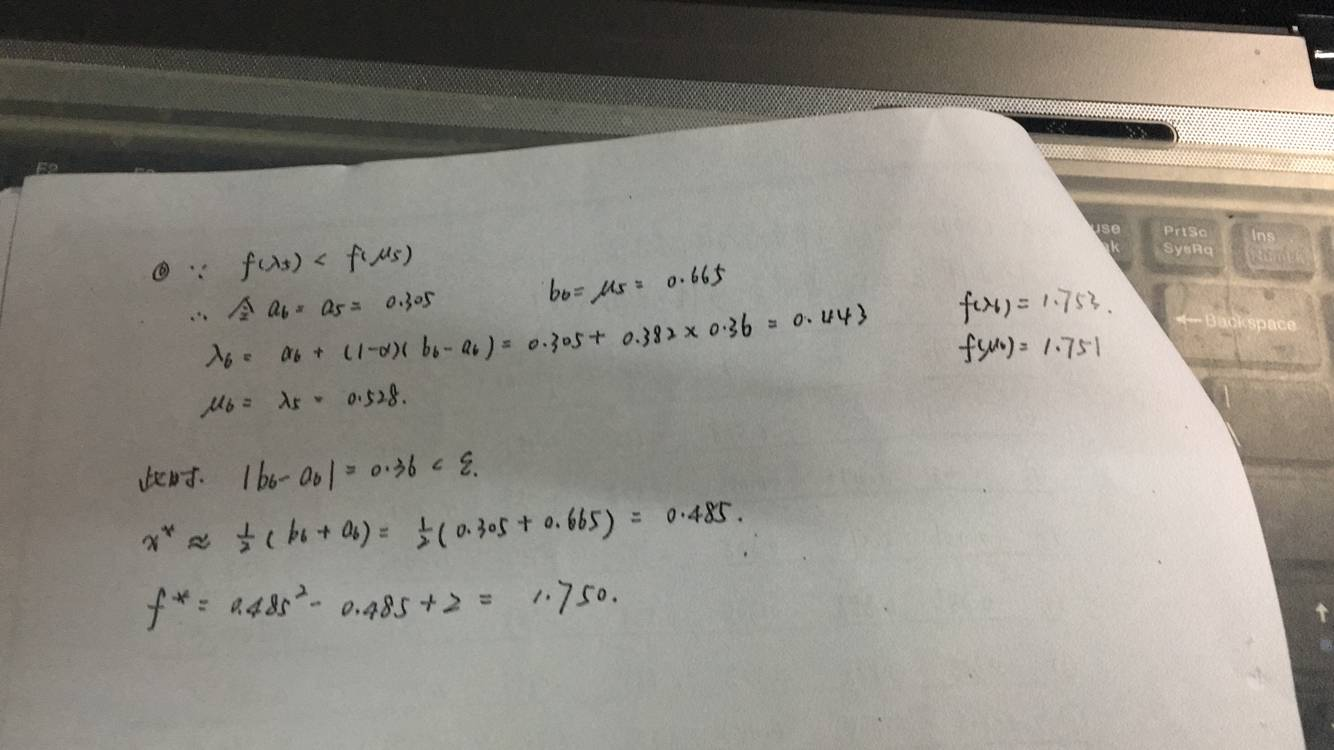 F2
⑥ ∵ f(λ5) < f(μ5)
∴ 令 a6 = a5 = 0.305 b6 = μ5 = 0.665
λ6 = a6 + (1-α)(b6 - a6) = 0.305 + 0.382 × 0.36 = 0.443
μ6 = λ5 = 0.528.
f(λ6) = 1.753.
f(μ6) = 1.751
此时. |b6 - a6| = 0.36 < ε.
x* ≈ 1/2 (b6 + a6) = 1/2 (0.305 + 0.665) = 0.485.
f* = 0.485² - 0.485 + 2 = 1.750.
PrtSc
SysRq
Ins
NumLk
← Backspace